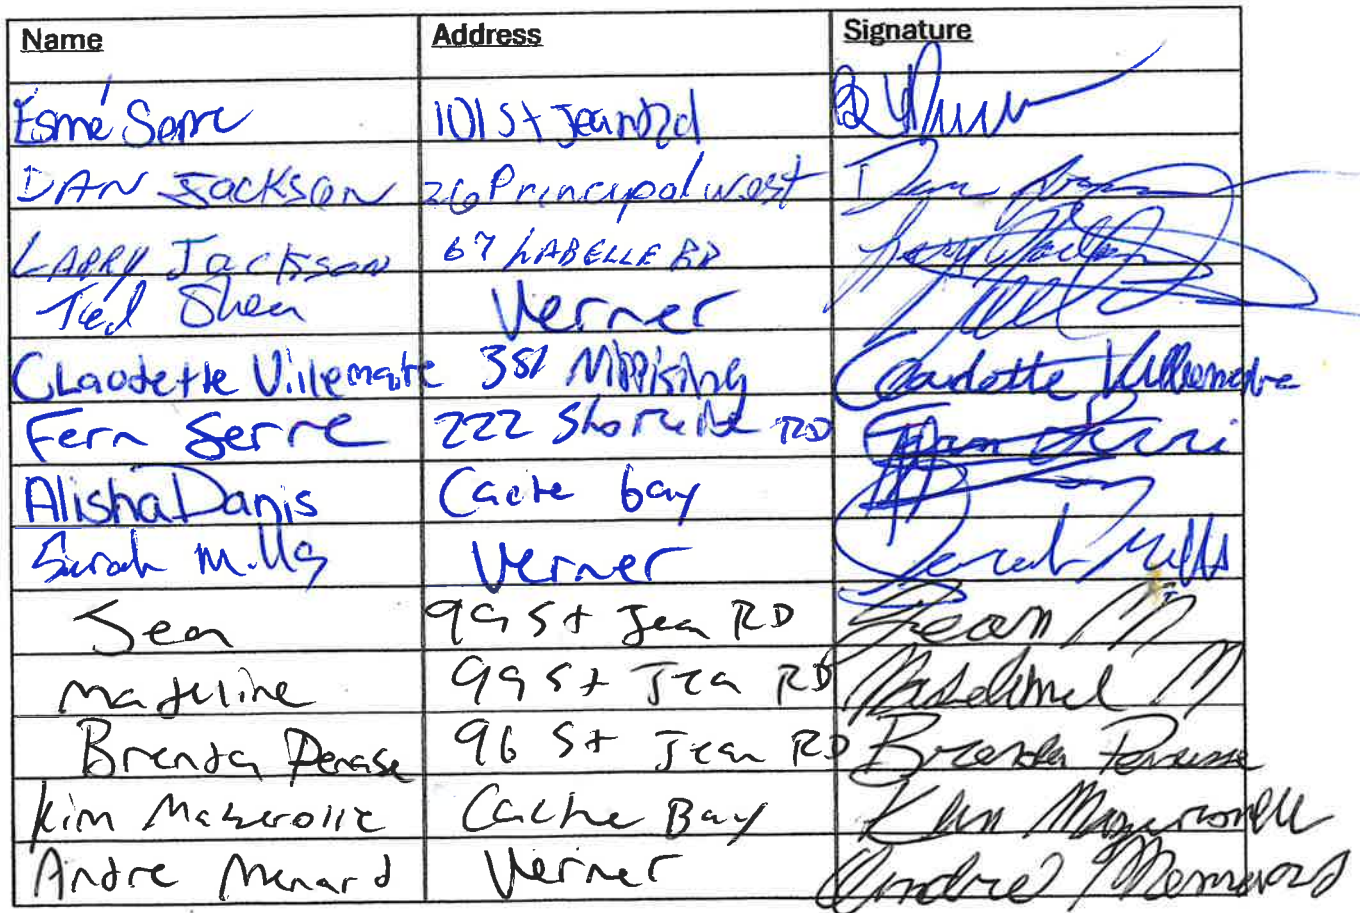 Name Address Signature
Esmé Serre 101 St Jean Rd
DAN JACKSON 26 Principal west Dan
LARRY JACKSON 67 LABELLE RD Larry Jackson
Ted Shea Verner
Claudette Villemaire 351 Nipissing Claudette Villemaire
Fern Serre 222 Shoreline RD Fern Serre
Alisha Danis Cache bay
Sarah Mills Verner Sarah Mills
Jean 99 St Jean RD Jean M
Madeline 99 St Jean RD M
Brenda 96 St Jean RD Brenda
Kim Mazerolle Cache Bay Kim
Andre Menard Verner Andre Menard